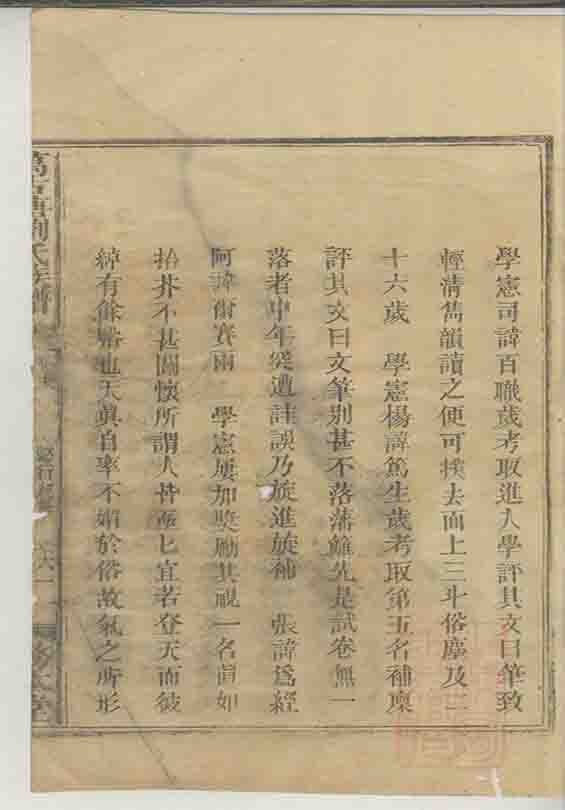 學憲司諱百職歲考取進入學評其文曰筆致
輕清雋韻讀之便可撲去面上三斗俗塵及二
十六歲　學憲楊諱篤生歲考取第五名補廩
評其文曰文筆別甚不落藩籬先是試卷無一
落者中年突遭詿誤乃旋進旋補　張諱為經
阿諱爾賽兩　學憲屢加獎勵其視一名眞如
拾芥不甚關懷所謂人皆
宜若登天而彼
綽有餘裕也天眞自率不媚於俗故氣之所形
劉氏族譜